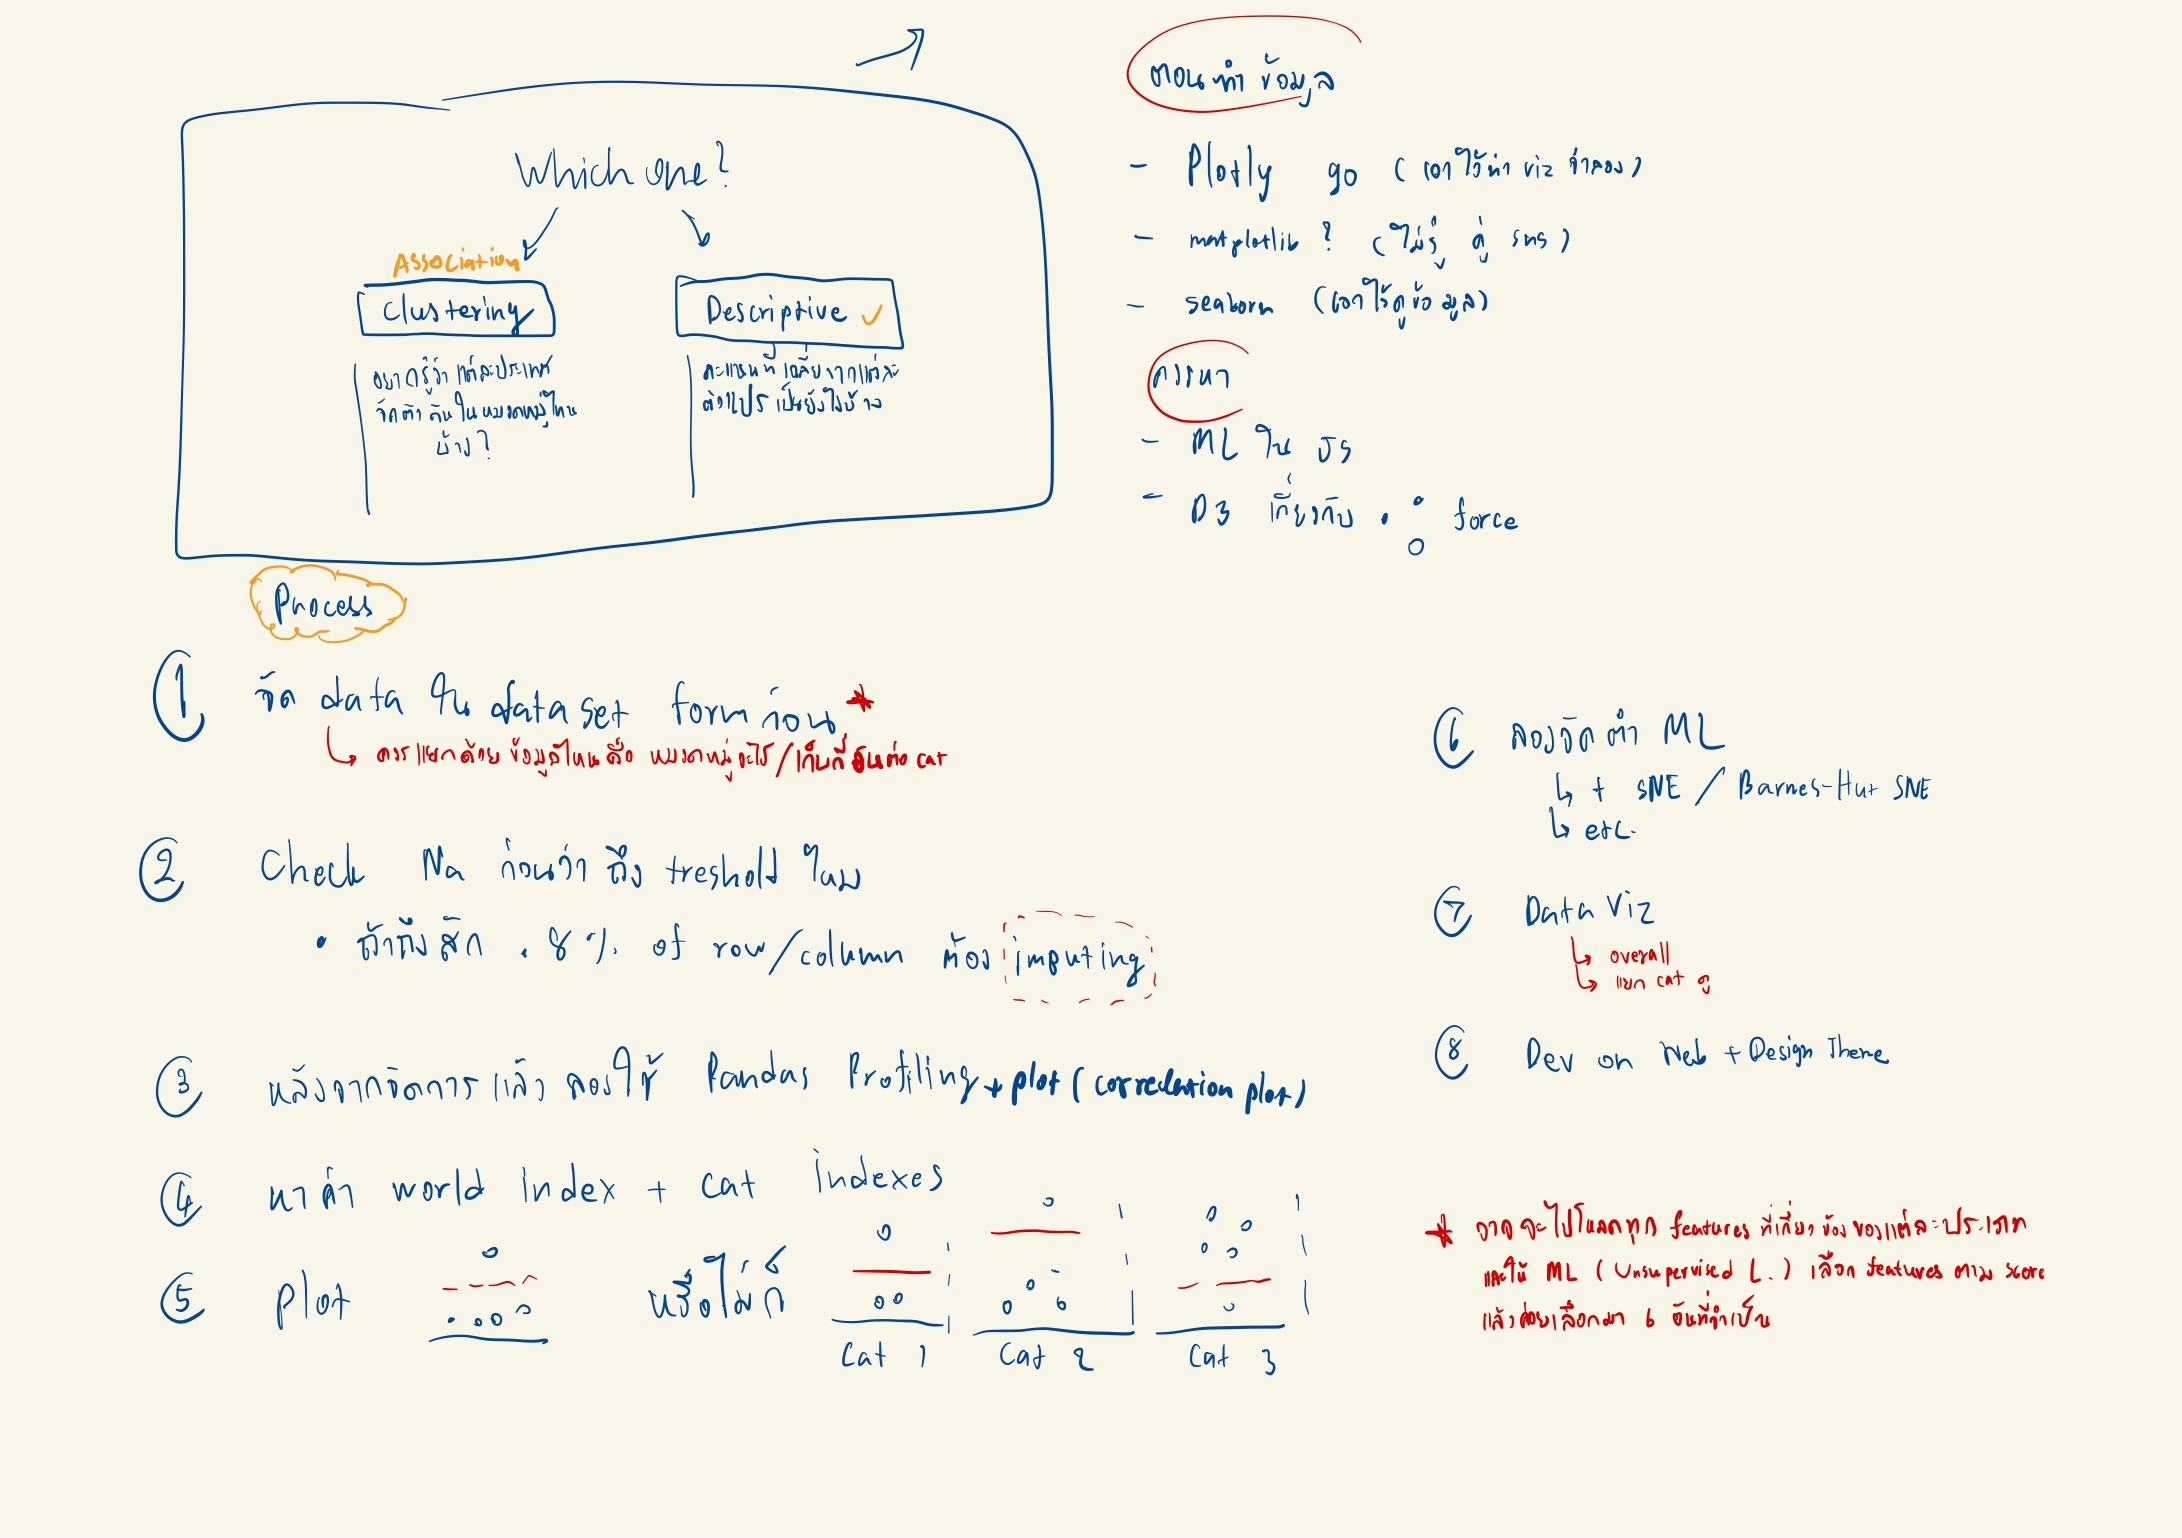 Which one?
Association
Clustering
อยากรู้ว่า แต่ละประเทศ
จัดตัวกันในหมวดหมู่ไหน
บ้าง?
Descriptive ✓
คะแนนที่เฉลี่ยจากแต่ละ
ตัวแปร เป็นยังไงบ้าง
ตอนทำ ข้อมูล
- Plotly go (เอาไว้ทำ viz จำลอง)
- matplotlib ? (ไม่รู้ คู่ sns)
- seaborn (เอาไว้ดูข้อมูล)
ควรหา
- ML ใน JS
- D3 เกี่ยวกับ force
Process
1 จัด data ใน data set form ก่อน *
↳ ควรแยกด้วย ข้อมูลไหนคือ หมวดหมู่อะไร/เก็บกี่อันต่อ cat
2 Check Na ก่อนว่า ถึง treshold ไหม
• ถ้าถึงสัก .8 % of row/column ต้อง imputing
3 หลังจากจัดการแล้ว ลองใช้ Pandas Profiling + plot (correlation plot)
4 หาค่า world index + cat indexes
5 plot หรือไม่ก็
Cat 1 Cat 2 Cat 3
6 ลองจัด ทำ ML
↳ t SNE / Barnes-Hut SNE
↳ etc.
7 Data Viz
↳ overall
↳ แยก cat ดู
8 Dev on Web + Design Theme
* อาจจะไปโหลดทุก features ที่เกี่ยวข้องของแต่ละประเภท
และให้ ML (Unsupervised L.) เลือก features ตาม score
แล้วค่อยเลือกมา 6 อันที่จำเป็น